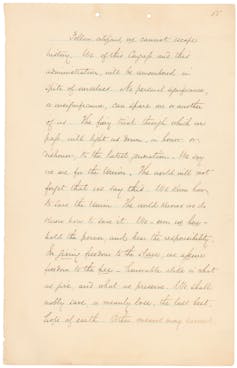 85
Fellow citizens, we cannot escape
history. We of this Congress and this
administration, will be remembered in
spite of ourselves. No personal significance,
or insignificance, can spare one or another
of us. The fiery trial through which we
pass, will light us down, in honor or
dishonor, to the latest generation. We say
we are for the Union. The world will not
forget that we say this. We know how
to save the Union. The world knows we do
know how to save it. We – even we here –
hold the power, and bear the responsibility.
In giving freedom to the slave, we assure
freedom to the free – honorable alike in what
we give, and what we preserve. We shall
nobly save, or meanly lose, the last best
hope of earth. Other means may succeed